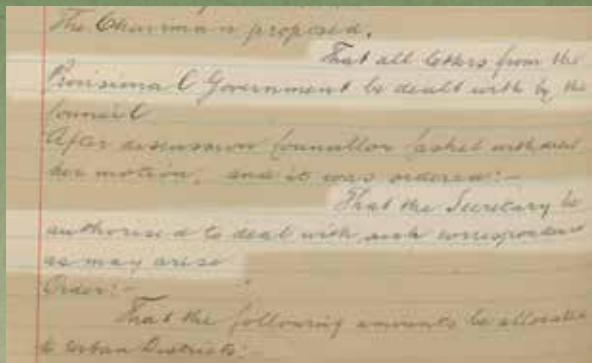 The Chairman proposed.
That all letters from the
Provisional Government be dealt with by the
Council
After discussion Councillor withdrew
her motion, and it was ordered:-
That the Secretary be
authorised to deal with such correspondence
as may arise
Order:-
That the following amounts be allocated
to Urban Districts:-